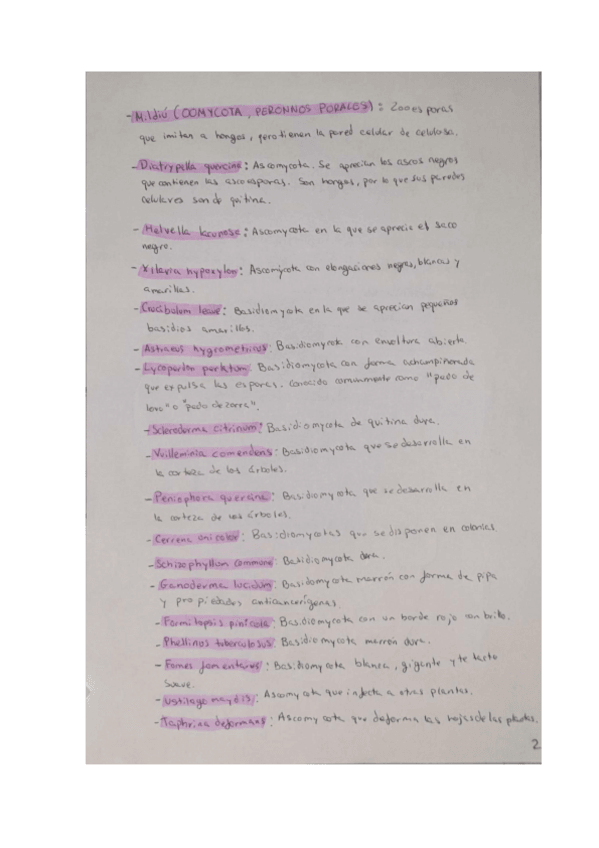 - Mildiú (OOMYCOTA, PERONNOS PORALES): Zooesporas
que imitan a hongos, pero tienen la pared celular de celulosa.
- Diatrypella quercina: Ascomycota. Se aprecian los ascos negros
que contienen las ascoesporas. Son hongos, por lo que sus paredes
celulares son de quitina.
- Helvella lacunosa: Ascomycota en la que se aprecia el saco
negro.
- Xilaria hypoxylon: Ascomycota con elongaciones negras, blancas y
amarillas.
- Crucibulum leave: Basidiomycota en la que se aprecian pequeños
basidios amarillos.
- Astraeus hygrometricus: Basidiomycota con envoltura abierta.
- Lycoperdon perlatum: Basidiomycota con forma achampiñonada
que expulsa las esporas. Conocido comunmente como "pedo de
lobo" o "pedo de zorra".
- Scleroderma citrinum: Basidiomycota de quitina dura.
- Vuilleminia comendens: Basidiomycota que se desarrolla en
la corteza de los árboles.
- Peniophora quercina: Basidiomycota que se desarrolla en
la corteza de los árboles.
- Cerrena unicolor: Basidiomycotas que se disponen en colonias.
- Schizophyllum commune: Basidiomycota dura.
- Ganoderma lucidum: Basidomycota marrón con forma de pipa
y propiedades anticancerígenas.
- Fomitopsis pinicola: Basidiomycota con un borde rojo con brillo.
- Phellinos tuberculosus: Basidiomycota marrón dura.
- Fomes fomentarius: Basidiomycota blanca, gigante y te tacto
suave.
- Ustilago maydis: Ascomycota que infecta a otras plantas.
- Taphrina deformans: Ascomycota que deforma las hojas de las plantas.
2